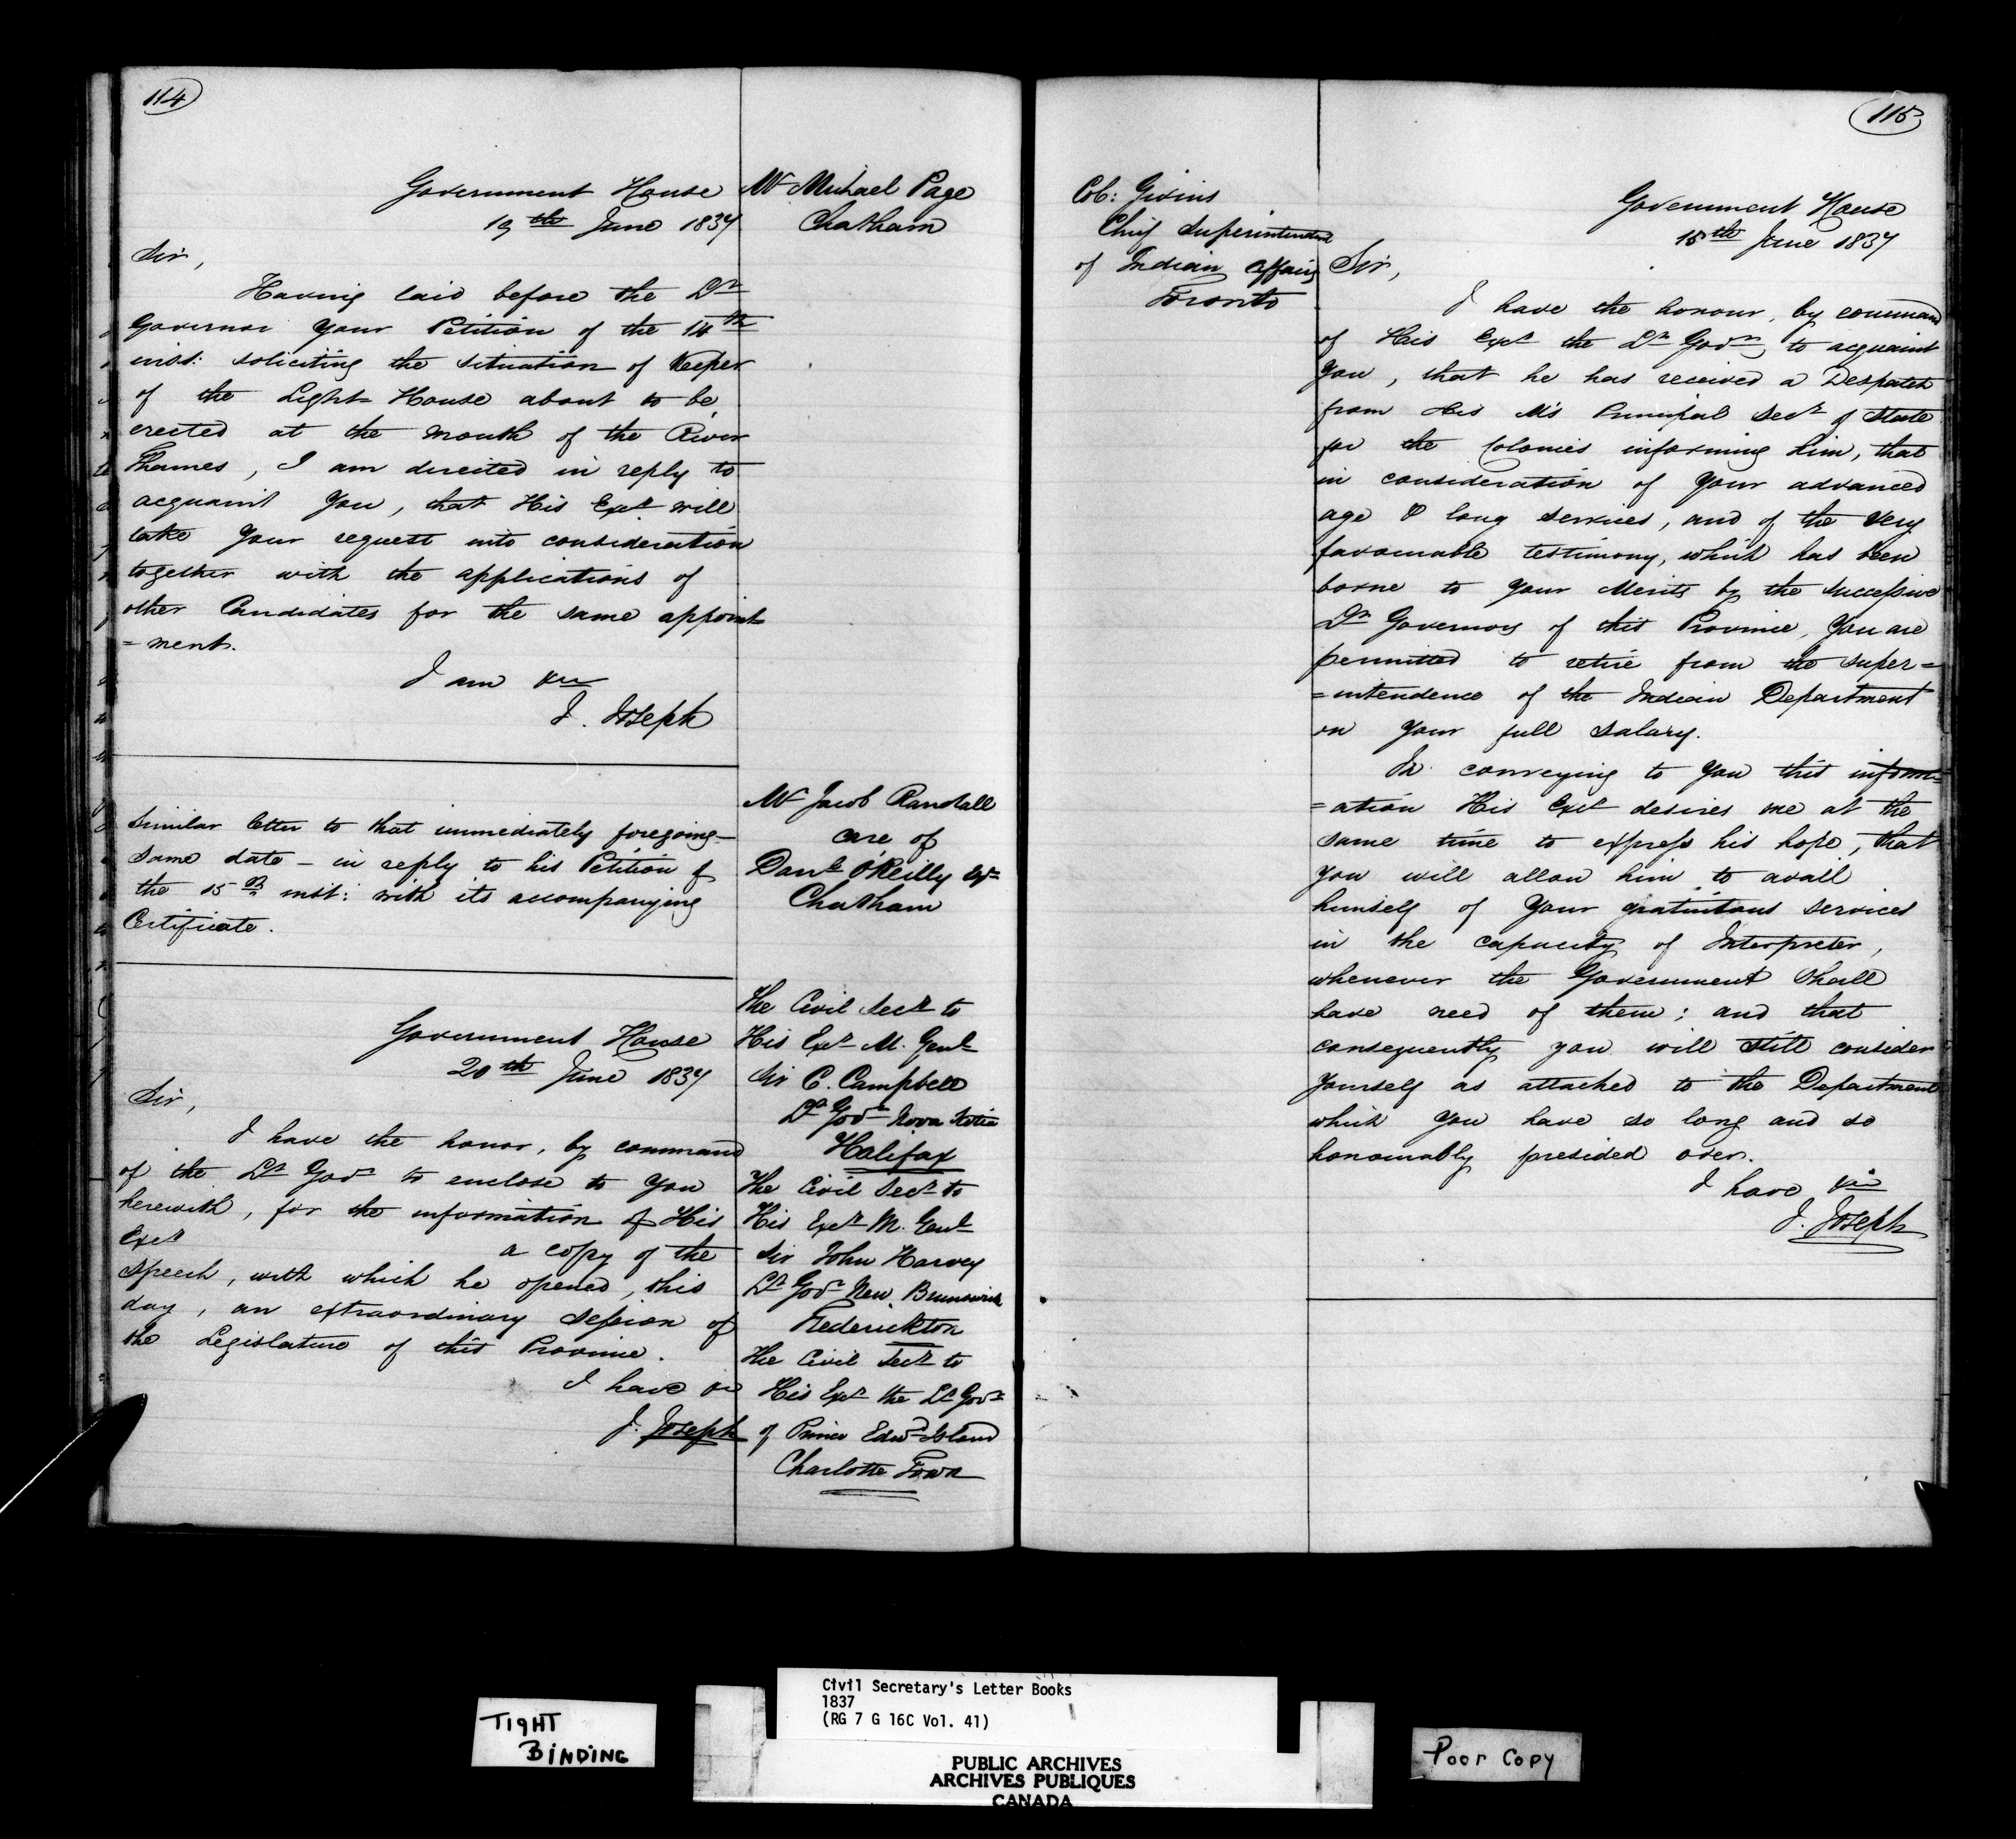 114
Government House
19th June 1837
Mr Michael Page
Chatham
Sir,
Having laid before the Lt
Governor Your Petition of the 14th
inst: soliciting the situation of Keeper
of the Light-House about to be
erected at the mouth of the River
Thames, I am directed in reply to
acquaint You, that His Excy will
take Your request into consideration
together with the applications of
other Candidates for the same appoint
=ment.
I am &c
J. Joseph
Mr Jacob Randall
care of
Danl O'Reilly Esqr
Chatham
Similar letter to that immediately foregoing—
same date — in reply to his Petition of
the 15th inst: with its accompanying
Certificate.
Government House
20th June 1837
The Civil Secy to
His Excy M. Genl
Sir C. Campbell
Lt Govr Nova Scotia
Halifax
The Civil Secy to
His Excy M. Genl
Sir John Harvey
Lt Govr New Brunswick
Frederickton
The Civil Secy to
His Excy the Lt Govr
of Prince Edwd Island
Charlotte Town
Sir,
I have the honor, by command
of the Lt Govr to enclose to You
herewith, for the information of His
Excy a copy of the
Speech, with which he opened, this
day, an extraordinary Session of
the Legislature of this Province.
I have &c
J. Joseph
115
Col: Givins
Chief Superintendent
of Indian Affairs
Toronto
Government House
15th June 1837
Sir,
I have the honour, by command
of His Excy the Lt Govr to acquaint
You, that he has received a Despatch
from His M's Principal Secy of State
for the Colonies informing him, that
in consideration of Your advanced
age & long services, and of the very
favourable testimony, which has been
borne to Your Merits by the successive
Lt Governors of this Province, You are
permitted to retire from the super=
=intendence of the Indian Department
on Your full salary.
In conveying to You this inform=
=ation His Excy desires me at the
same time to express his hope, that
You will allow him to avail
himself of Your gratuitous services
in the capacity of Interpreter,
whenever the Government shall
have need of them; and that
consequently you will still consider
Yourself as attached to the Department
which You have so long and so
honourably presided over.
I have &c
J. Joseph
TIGHT
BINDING
Civil Secretary's Letter Books
1837
(RG 7 G 16C Vol. 41)
PUBLIC ARCHIVES
ARCHIVES PUBLIQUES
CANADA
Poor Copy